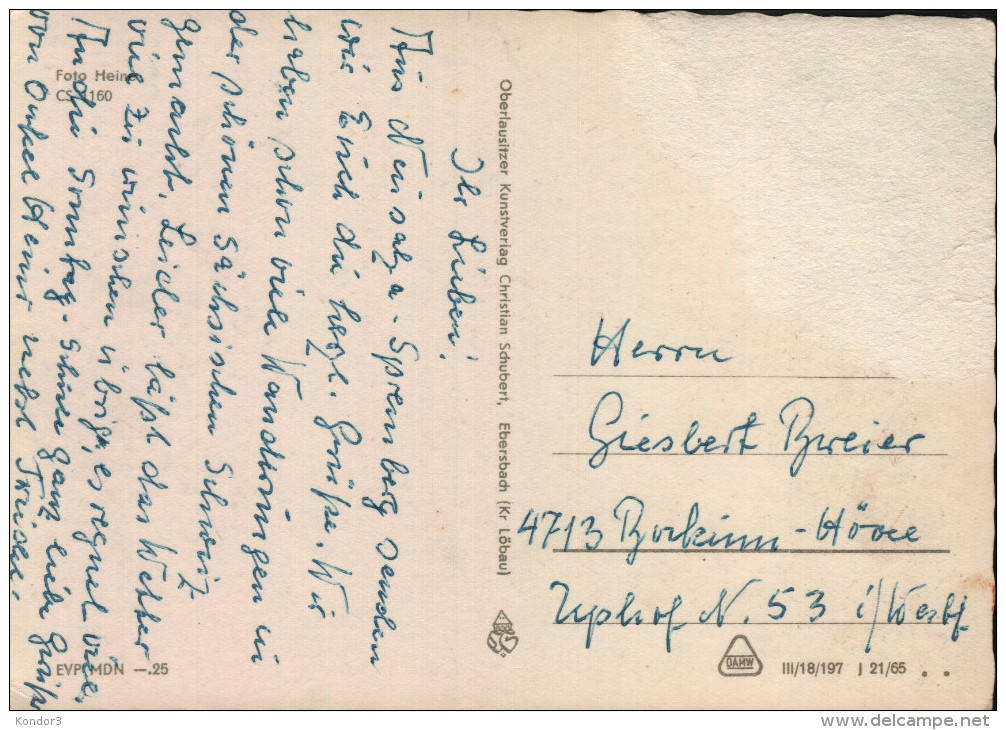 Ihr Lieben!
Aus Neusalza-Spremberg senden
wir Euch die herzl. Grüße. Wir
haben schon viele Wanderungen in
der schönen Sächsischen Schweiz
gemacht. Leider läßt das Wetter
viel zu wünschen übrig, es regnet viel.
Sonntag. ganz liebe Grüße
von Onkel Heinz nebst
Foto Heine
CS 1160
EVP MDN —.25
Oberlausitzer Kunstverlag Christian Schubert, Ebersbach (Kr Löbau)
Herrn
Giesbert Breier
4713 Bockum-Hövel
Uphof N. 53 i/Westf
DAMW
III/18/197 J 21/65
Kondor3
www.delcampe.net